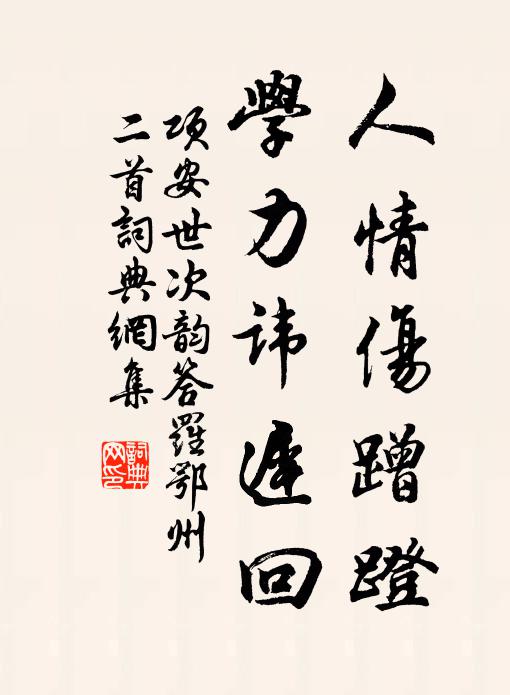 人情傷蹭蹬
學力諱遲回
項安世次韵答羅鄂州
二首詞典網集
詞典网印